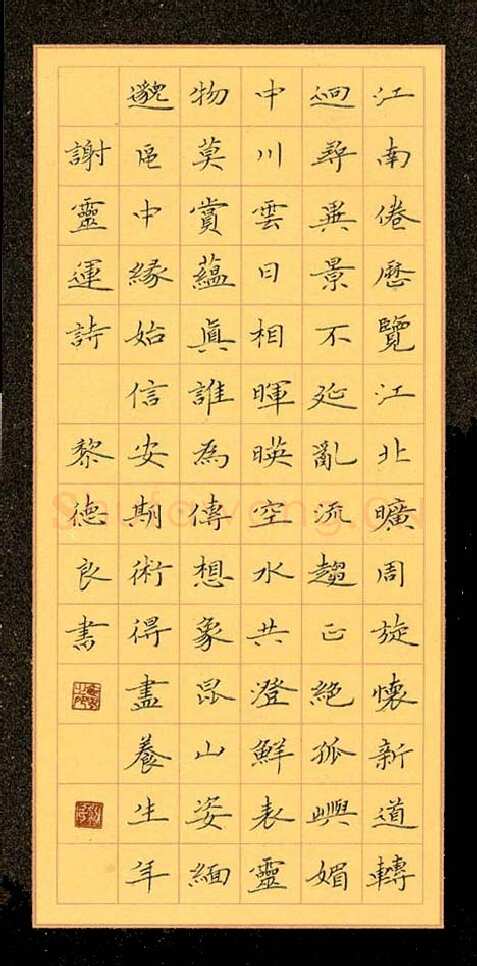 江南倦歷覽江北曠周旋懷新道轉
迴尋異景不延亂流趨正絕孤嶼媚
中川雲日相暉暎空水共澄鮮表靈
物莫賞蘊眞誰為傳想象昆山姿緬
邈區中緣始信安期術得盡養生年
謝靈運詩 黎德良書